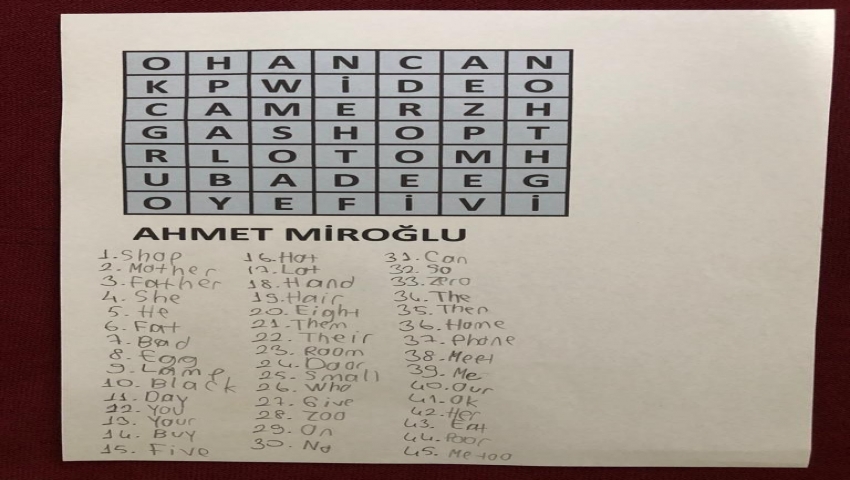 O H A N C A N
K P W İ D E O
C A M E R Z H
G A S H O P T
R L O T O M H
U B A D E E G
O Y E F İ V İ
AHMET MİROĞLU
1. Shop 16. Hot 31. Can
2. Mother 17. Lot 32. So
3. Father 18. Hand 33. Zero
4. She 19. Hair 34. The
5. He 20. Eight 35. Then
6. Fat 21. Them 36. Home
7. Bad 22. Their 37. Phone
8. Egg 23. Room 38. Meet
9. Lame 24. Door 39. Me
10. Black 25. Small 40. Our
11. Day 26. Who 41. Ok
12. You 27. Give 42. Her
13. Your 28. Zoo 43. Eat
14. Buy 29. On 44. Poor
15. Five 30. No 45. Me too